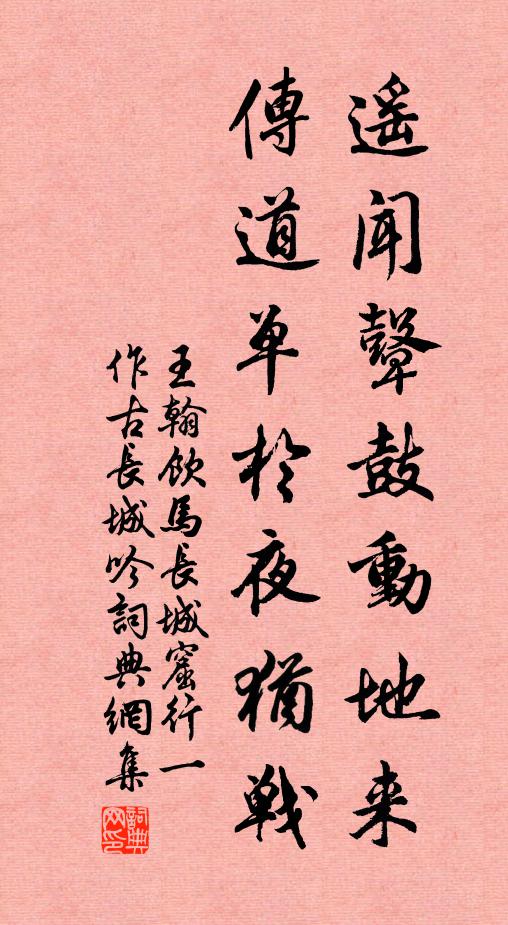 遥闻鼙鼓動地来
傳道单於夜猶戰
王翰飲馬長城窟行一
作古長城吟詞典網集
詞典
网印